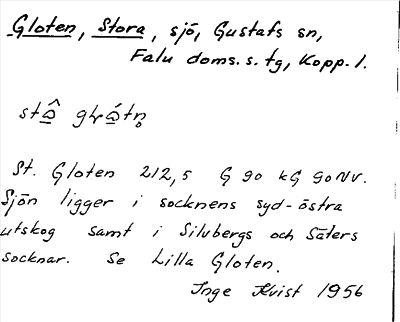 Gloten, Stora, sjö, Gustafs sn,
Falu doms.s. tg, Kopp. l.
St. Gloten 212,5 G 90 kG 90 NV.
Sjön ligger i socknens syd-östra
utskog samt i Silvbergs och Säters
socknar. Se Lilla Gloten.
Inge Kvist 1956